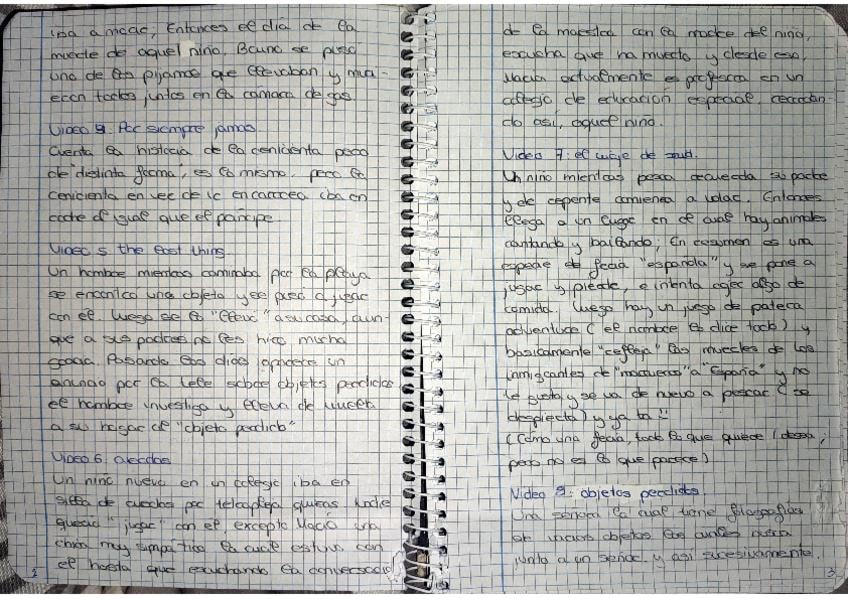 iba a morir, Entonces el día de la
muerte de aquel niño, Bruno se puso
uno de los pijamas que llevaban y mu
eron todos juntos en la cámara de gas.
Video 4: Por siempre jamás.
Cuenta la historia de la cenicienta pero
de "distinta forma", es lo mismo, pero la
cenicienta en vez de ir en carroza iba en
coche al igual que el principe.
Video 5 the lost thing.
Un hombre mientras caminaba por la playa
se encontró una objeto y se puso a jugar
con el. Luego se lo "llevó" a su casa, aun-
que a sus padres no les hizo mucha
gracia. Pasando los días aparece un
anuncio por la tele sobre objetos perdidos
el hombre investigo y lleva de vuelta
a su hogar al "objeto perdido"
Video 6. cuerdas
Un niño nuevo en un colegio iba en
silla de ruedas por teleraplejia quienes
quería "jugar" con el excepto María una
chica muy simpática la cual estuvo con
el hasta que escuchando la conversació
2
de la maestra con la madre del niño,
escucha que ha muerto y desde eso,
María actualmente es profesora en un
colegio de educación especial, recordan
do así, aquel niño.
Video 7: el viaje de said.
Un niño mientras pesca recuerda su padre
y de repente comienza a volar. Entonces
llega a un lugar en el cual hay animales
cantando y bailando; En resumen es una
especie de feria "española" y se pone a
jugar y pierde, e intenta coger algo de
comida. Luego hay un juego de patera
adventure (el nombre lo dice todo) y
basicamente "refleja" las muertes de los
inmigrantes de "marruecos" a "España" y no
le gusta y se va de nuevo a pescar (se
despierta) y ya ta !!
(Cómo una feria, todo lo que quiere / desea,
pero no es lo que parece)
Video 8: objetos perdidos.
Una señora la cual tiene fotografías
de varios objetos los cuales
junto a un señor, y así sucesivamente.
3